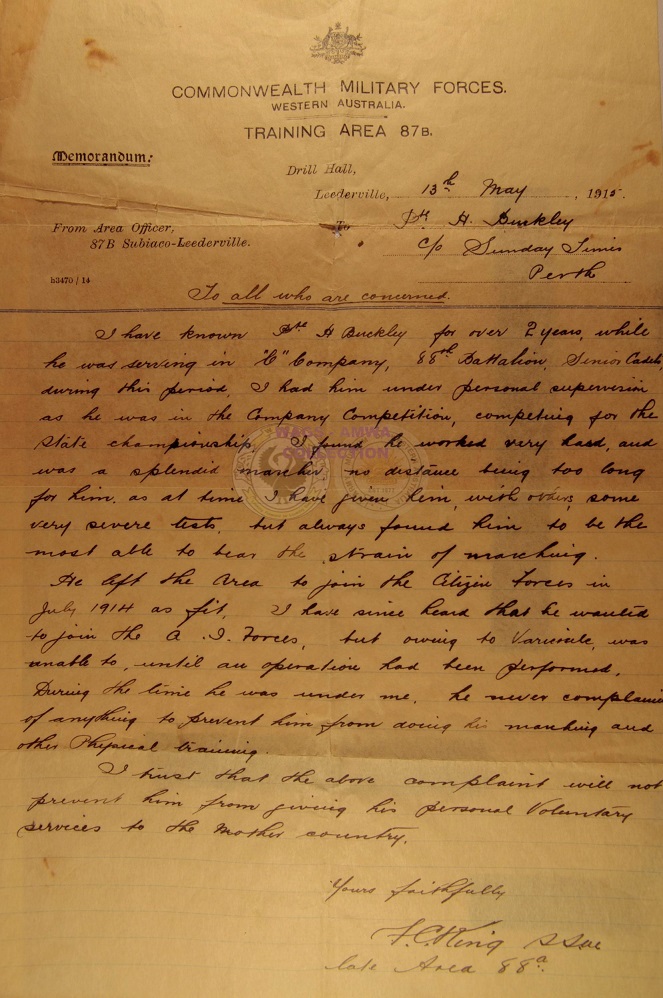 COMMONWEALTH MILITARY FORCES.
WESTERN AUSTRALIA.
TRAINING AREA 87B.
Memorandum:
Drill Hall,
Leederville, 13th May, 1915.
From Area Officer,
87B Subiaco-Leederville.
To Pte H. Buckley
c/o Sunday Times
Perth
h3470/14
To all who are concerned.
I have known Pte H Buckley for over 2 years, while
he was serving in "C" Company, 88th Battalion, Senior Cadets,
during this period, I had him under personal supervision
as he was in the Company Competition, competing for the
State championship. I found he worked very hard, and
was a splendid marcher no distance being too long
for him, as at time I have given him, with others, some
very severe tests, but always found him to be the
most able to bear the strain of marching.
He left the Area to join the Citizen Forces in
July 1914 as fit. I have since heard that he wanted
to join the A.I. Forces, but owing to Varicocele, was
unable to, until an operation had been performed.
During the time he was under me, he never complained
of anything to prevent him from doing his marching and
other Physical training.
I trust that the above complaint will not
prevent him from giving his personal Voluntary
services to the Mother country.
Yours faithfully
F.C. King
late Area 88a.
AMWA
COLLECTION